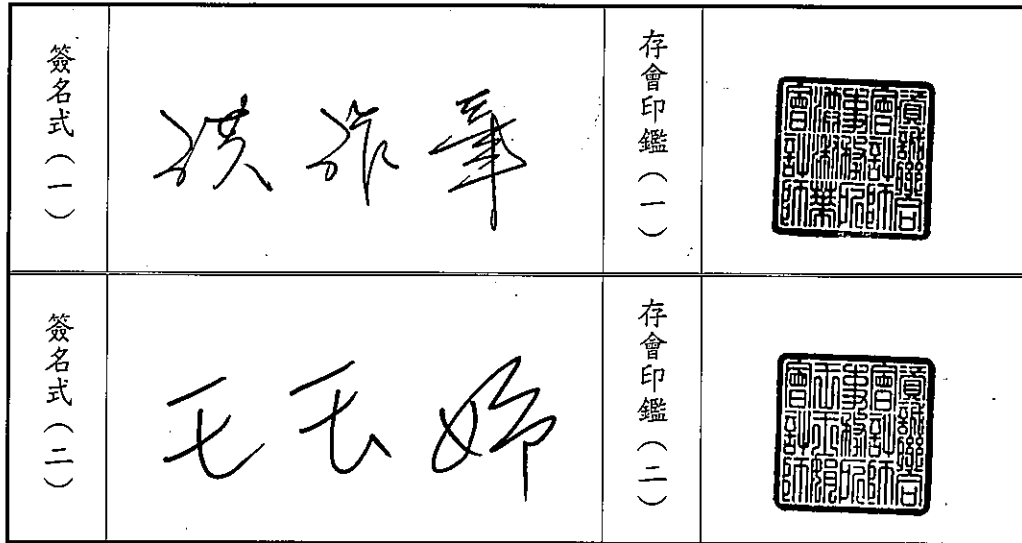 簽名式（一）
存會印鑑（一）
資誠聯合
會計師
事務所
會計師
簽名式（二）
王玉娟
存會印鑑（二）
資誠聯合
會計師
事務所
王玉娟
會計師